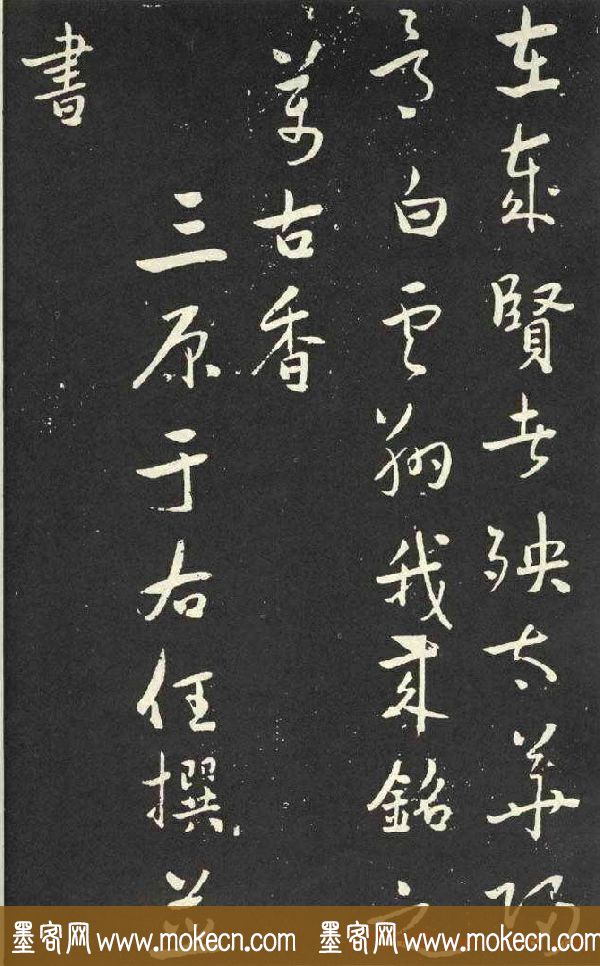 在賢者殃太華
白雲翔我來銘之
萬古香
三原于右任撰並
書
墨客网 www.mokecn.com 墨客网 www.mokecn.com